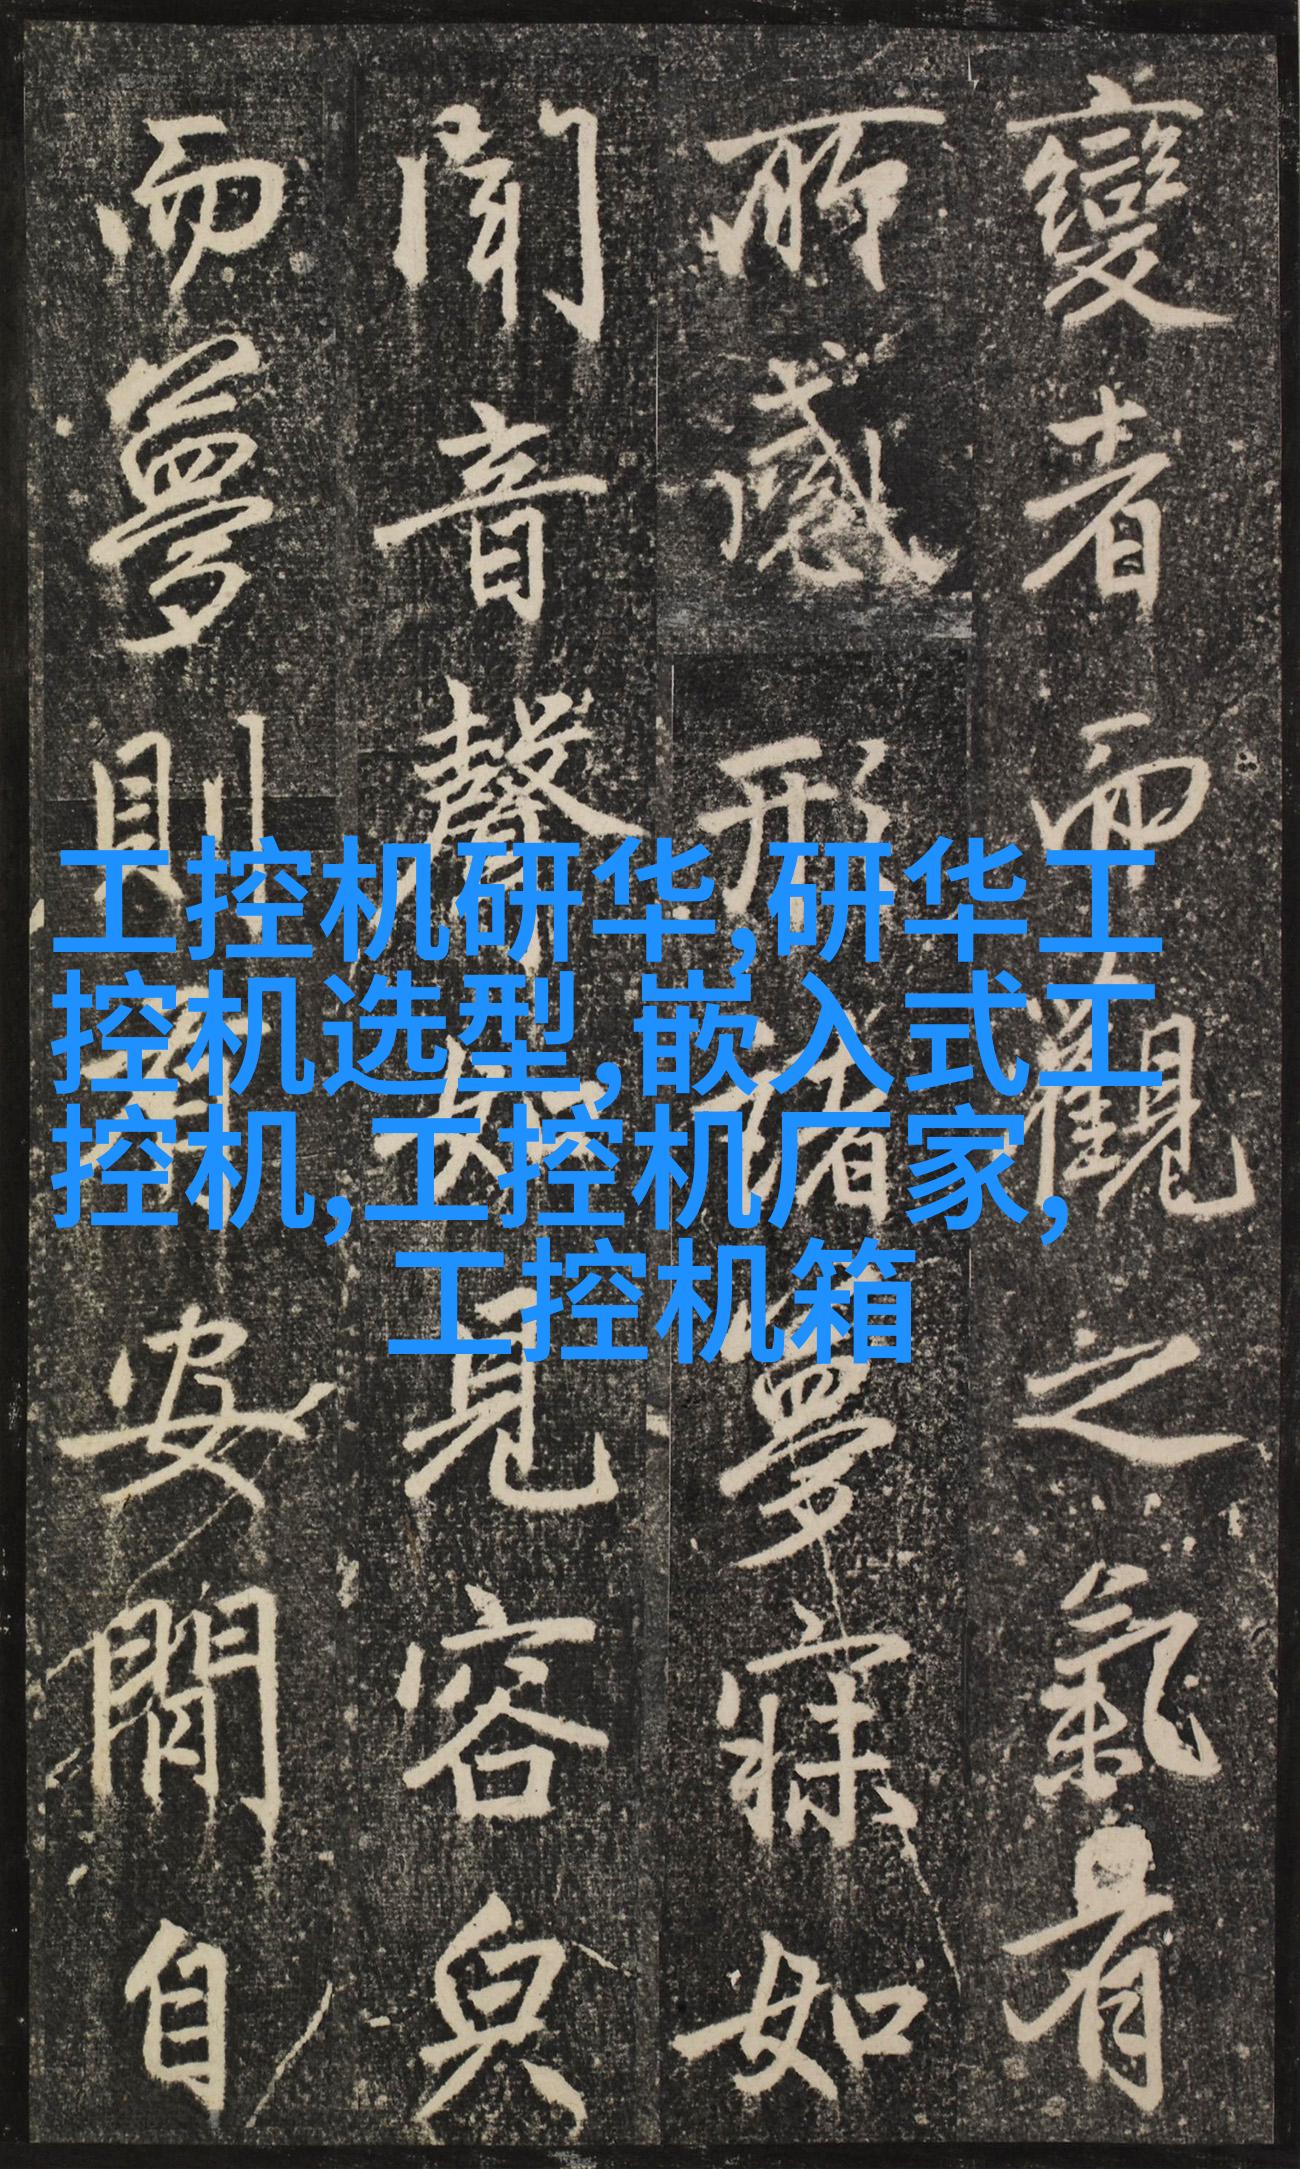 變者而觀之氣有
所感形諸夢寐如
聞音聲如見容皃
而夢則安閒自
工控机研华,研华工
控机选型,嵌入式工
控机,工控机厂家,
工控机箱